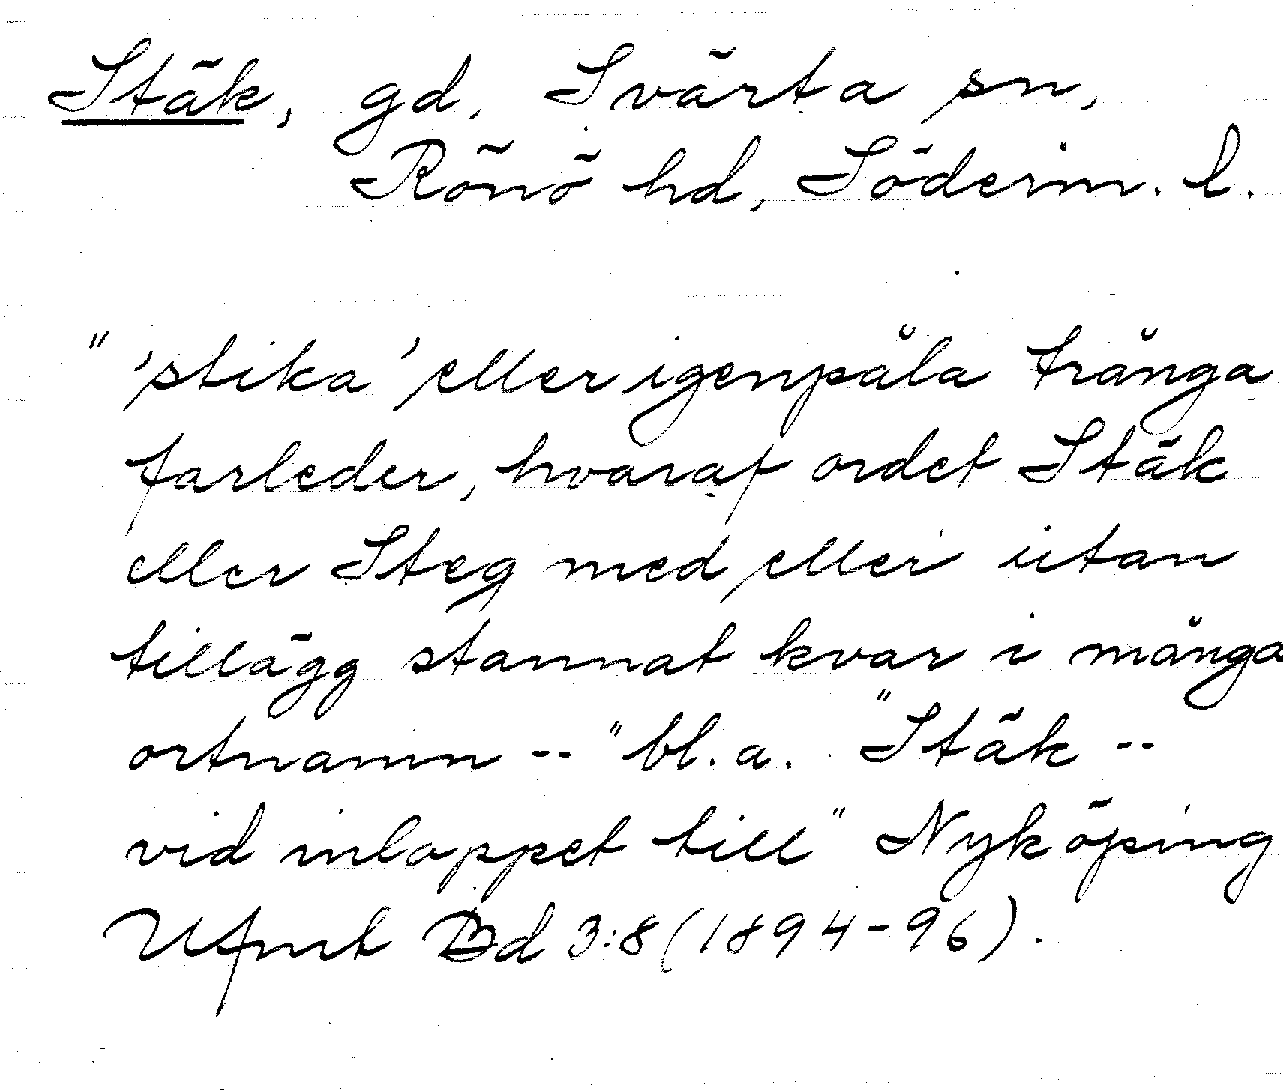 Stäk, gd, Svärta sn,
Rönö hd, Söderm. l.
" 'stika' eller igenpåla trånga
farleder, hvaraf ordet Stäk
eller Steg med eller utan
tillägg stannat kvar i många
ortnamn -- " bl. a. "Stäk --
vid inloppet till" Nyköping
Ufmt Bd 3:8 (1894-96).